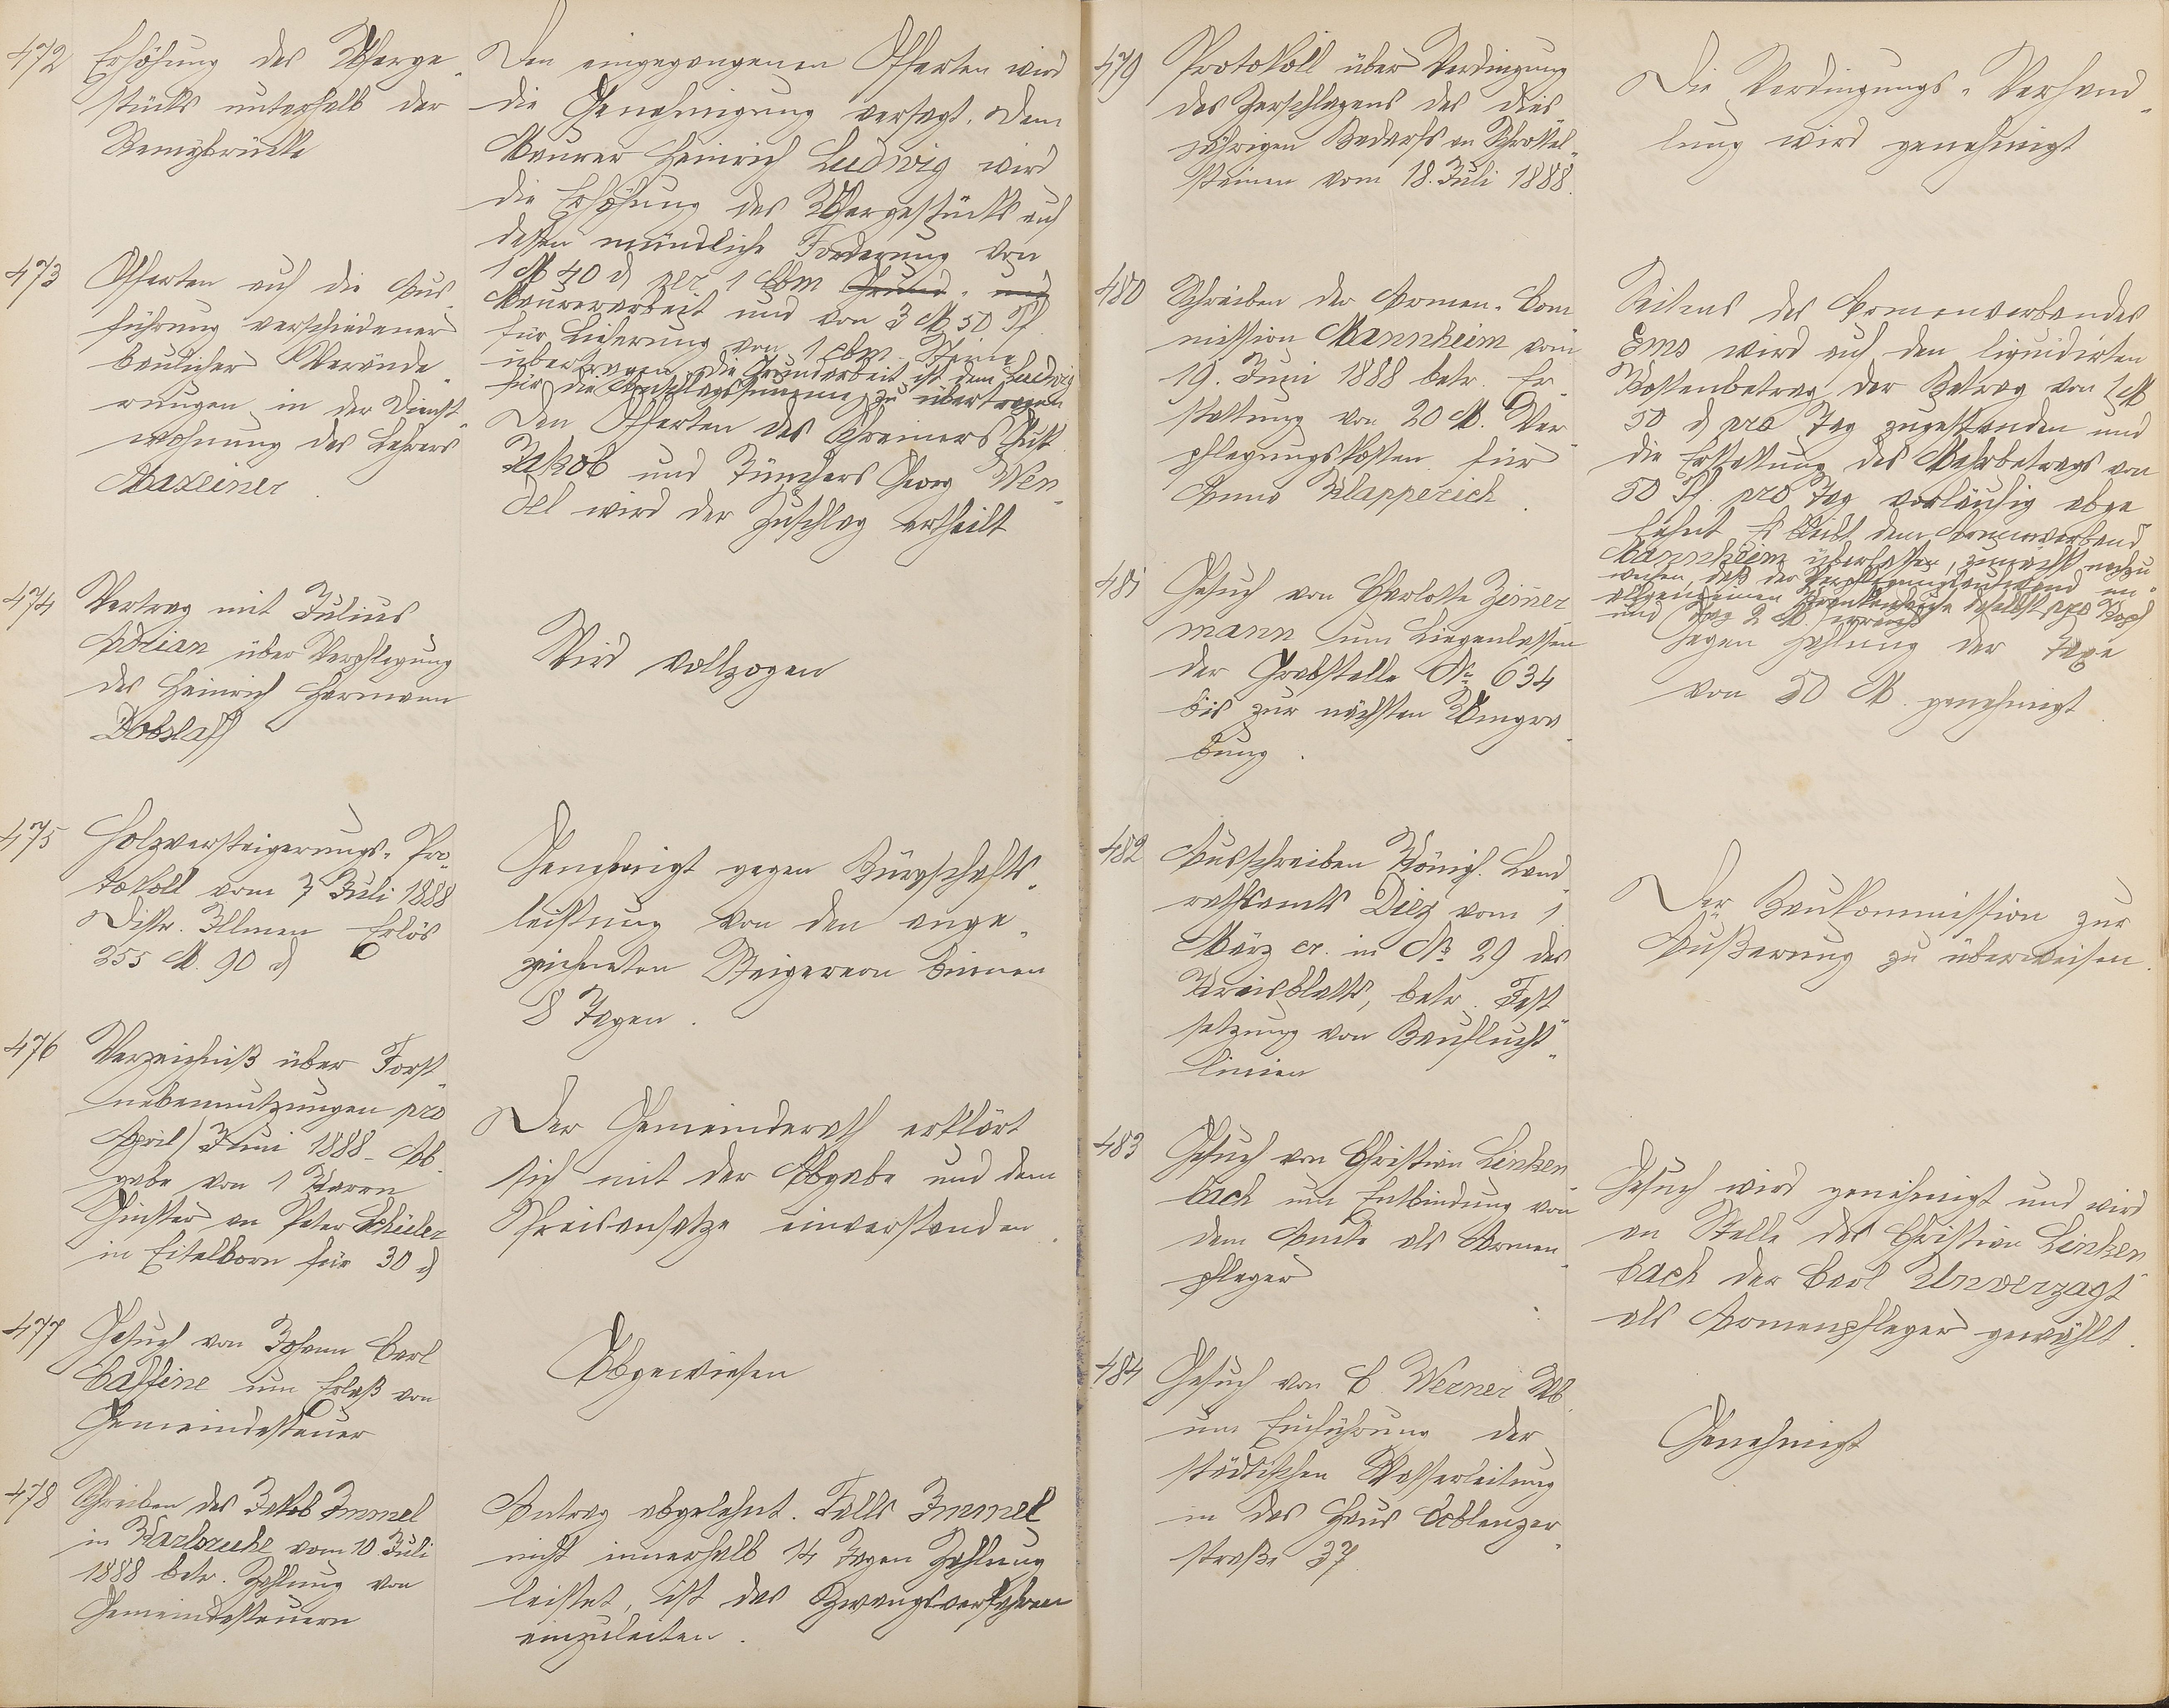 472
Erhöhung des Uferge-
stücks unterhalb der
Remybrücke
Den eingegangenen Offerten wird
die Genehmigung versagt. Dem
Maurer Heinrich Ludwig wird
die Erhöhung des Ufergestücks auf
dessen mündliche Forderung von
1 M 40 ₰ per 1 cbm Grund- und
Maurerarbeit und von 3 M 50 Pf
für Lieferung von 1 cbm Steine
übertragen. Die Grundarbeit ist dem Ludwig
für die Anschlagssumme zu übertragen
473
Offerten auf die Aus-
führung verschiedener
baulicher Verände-
rungen in der Dienst-
wohnung des Lehrers
Maxeiner.
Den Offerten des Schreiners
Jakob und Tünchers Georg Wen-
del wird der Zuschlag ertheilt
474
Vertrag mit Julius
Adrian über Verpflegung
des Heinrich Hermann
Dobslaff
Wird vollzogen
475
Holzversteigerungs-Pro-
tokoll vom 7 Juli 1888
Distr. Ulmen Erlös
255 M. 90 ₰
Genehmigt gegen Bürgschafts-
leistung von den ange-
zeichneten Steigerern binnen
8 Tagen.
476
Verzeichniß über Forst-
nebennutzungen pro
April/Juni 1888 - Ab-
gabe von 1 Karren
Ginster an Peter Schüler
in Eitelborn für 30 ₰
Der Gemeinderath erklärt
sich mit der Abgabe und dem
Preisansatze einverstanden.
477
Gesuch von Johann Carl
Caffine um Erlaß von
Gemeindesteuer
Abgewiesen
478
Schreiben des Jakob Immel
in Karlsruhe vom 10 Juli
1888 betr. Zahlung von
Gemeindesteuern
Antrag abgelehnt. Falls Immel
nicht innerhalb 14 Tagen Zahlung
leistet, ist das Zwangsverfahren
einzuleiten.
479
Protokoll über Verdingung
des Zerschlagens des dies-
jährigen Bedarfs an Schrottel-
steinen vom 18. Juli 1888.
Die Verdingungs-Verhand-
lung wird genehmigt
480
Schreiben der Armen-Com-
mission Mannheim vom
19. Juni 1888 betr. Er-
stattung von 20 M. Ver-
pflegungskosten für
Anna Klapperich.
Seitens des Armenverbandes
Ems wird auf den liquidirten
Kostenbetrag der Betrag von 1 M
50 ₰ pro Tag zugestanden und
die Erstattung des Mehrbetrags von
50 Pf. pro Tag vorläufig abge-
lehnt. Es bleibt dem Armenverband
Mannheim überlassen, zunächst nachzu-
weisen, daß der Verpflegungsaufwand im
allgemeinen Krankenhause daselbst pro Kopf
und Tag 2 M. erreicht
481
Gesuch von Charlotte Zimmer-
mann um Liegenlassen
der Grabstelle No 634
bis zur nächsten Umgra-
bung.
Gegen Zahlung der Taxe
von 50 M. genehmigt
482
Ausschreiben Königl. Land-
rathsamts Diez vom 1
März cr. in No 29 des
Kreisblatts, betr. Fest-
setzung von Baufluchtt-
linien
Der Baukommission zur
Äußerung zu überweisen.
483
Gesuch von Christian Linken-
bach um Entbindung von
dem Amte als Armen-
pfleger
Gesuch wird genehmigt und wird
an Stelle des Christian Linken-
bach der Carl Unverzagt
als Armenpfleger gewählt.
484
Gesuch von C. Werner Wb.
um Einführung der
städtischen Wasserleitung
in das Haus Coblenzer-
straße 37.
Genehmigt